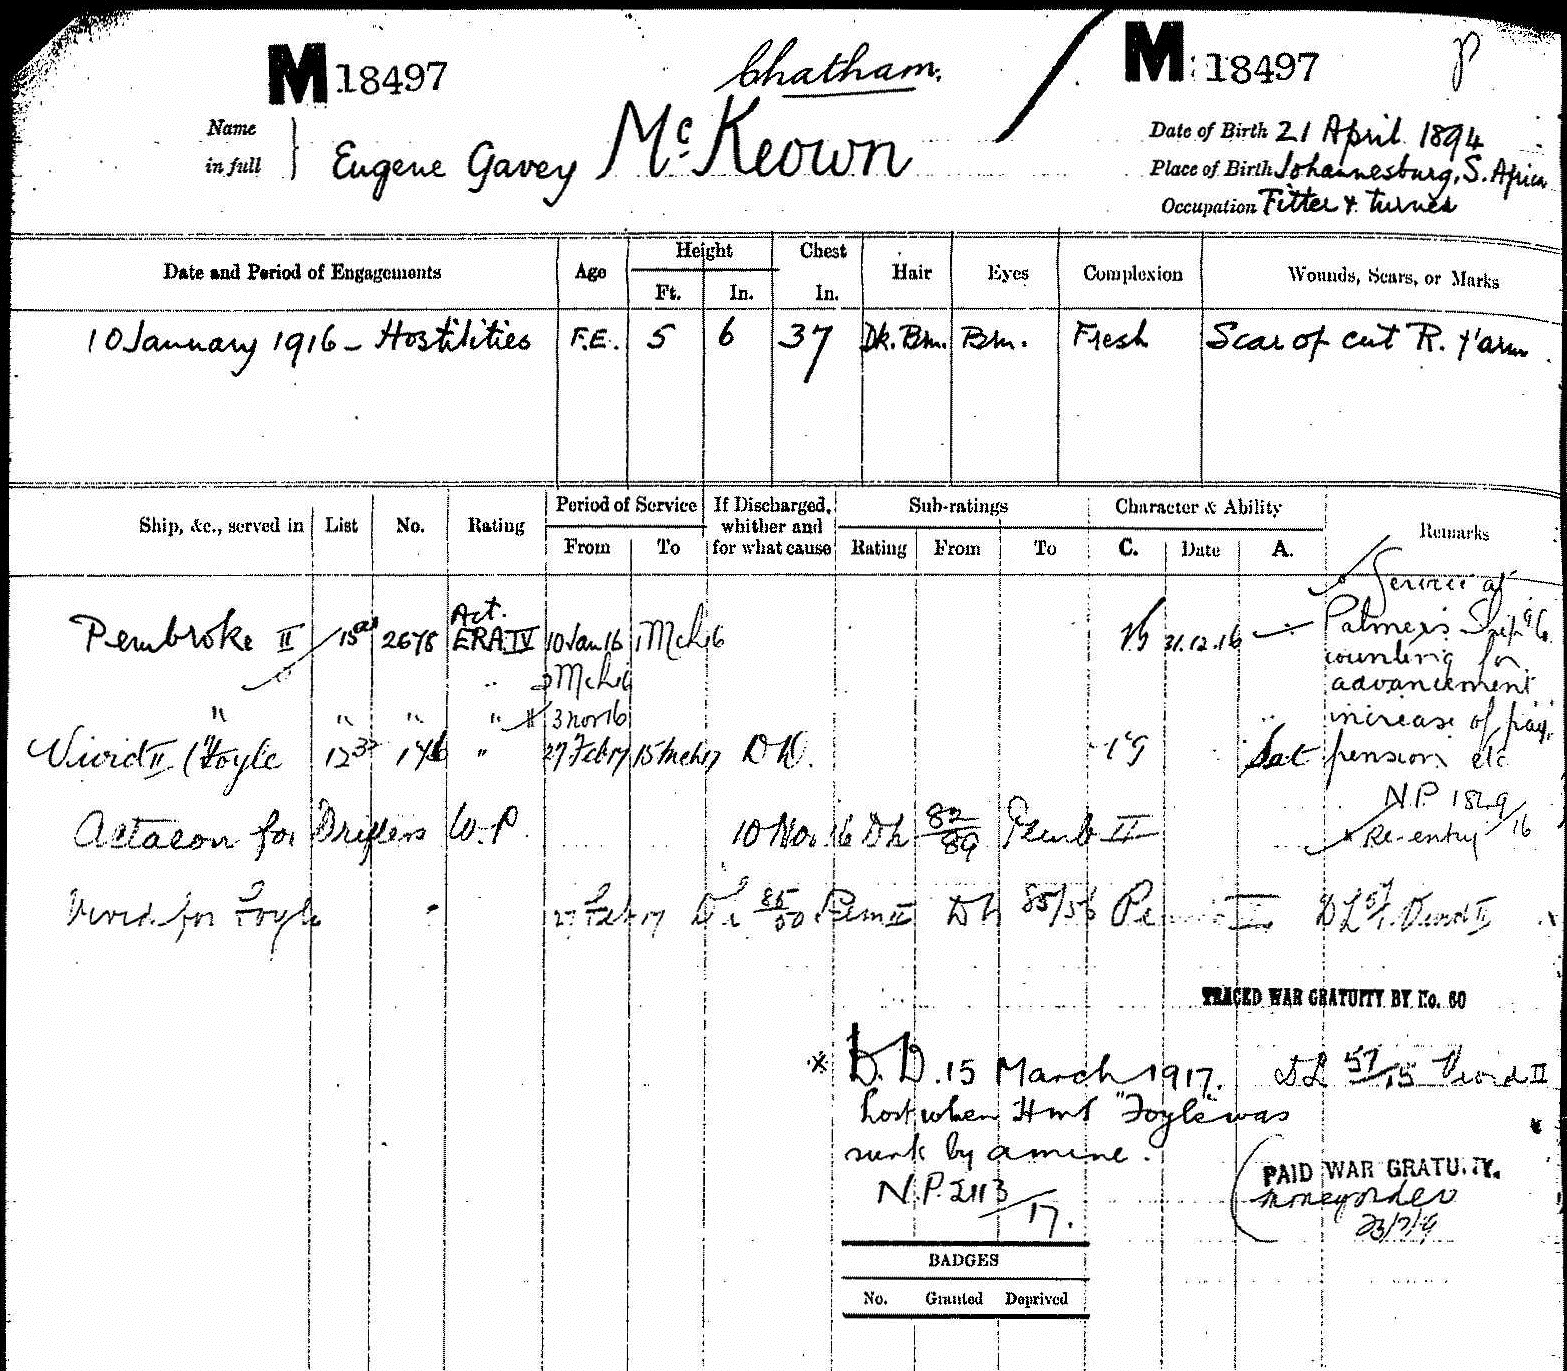 M 18497 Chatham. M 18497 P
Name in full Eugene Gavey McKeown
Date of Birth 21 April 1894
Place of Birth Johannesburg, S. Africa
Occupation Fitter & turner
Date and Period of Engagements Age Height Ft. In. Chest In. Hair Eyes Complexion Wounds, Scars, or Marks
10 January 1916 - Hostilities F.E. 5 6 37 Dk. Brn. Brn. Fresh Scar of cut R. f'arm
Ship, &c., served in List No. Rating Period of Service If Discharged, whither and for what cause Sub-ratings Character & Ability Remarks
From To Rating From To C. Date A.
Service at
Act.
Pembroke II 15 2678 ERA IV 10 Jan 16 1 Mch 16 VG 31.12.16 Palmers
counting for
" Mch 16 advancement
" " " " 3 Nov 16 increase of pay,
Vivid II (Foyle 12 " 27 Feb 17 15 Mch 17 DD. VG Sat pension etc
N.P. 1849/16
Actaeon for Drifters W.P. 10 Nov. 16 Dh 82/89 Pemb II Re-entry
Vivid for Foyle 27 Feb 17 Pem II Dh 85/56 DL Vivid II
TRACED WAR GRATUITY BY No. 60
* D.D. 15 March 1917. DL 57/15 Vivid II
Lost when HMS "Foyle" was
sunk by a mine.
PAID WAR GRATUITY.
N.P. 2113/17. money order
23/7/19
BADGES
No. Granted Deprived